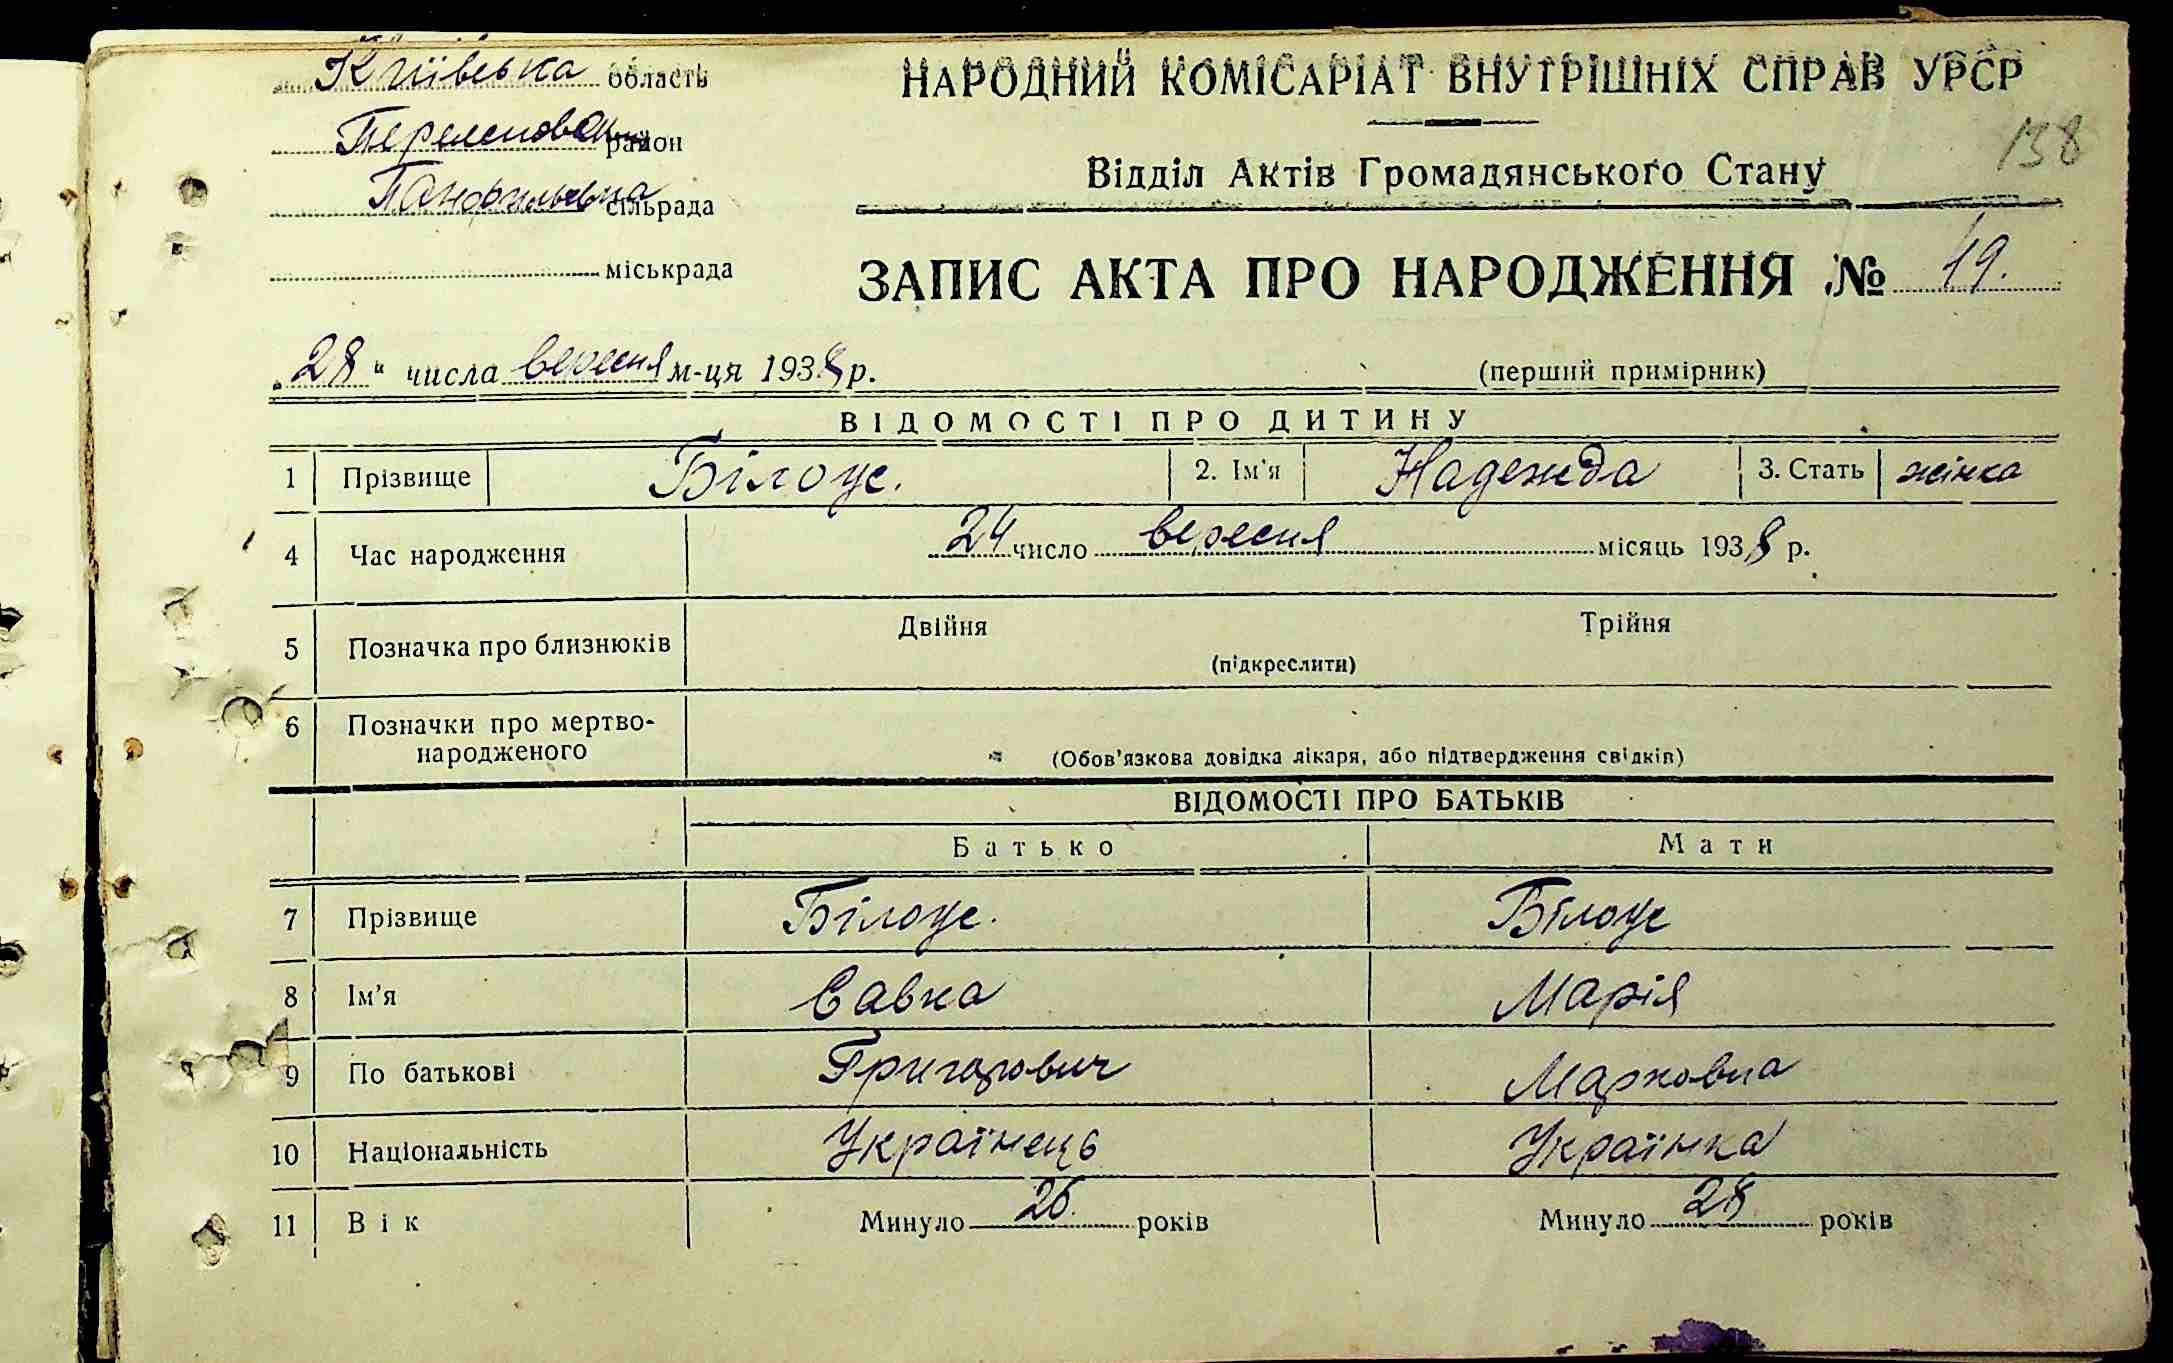 Київська область
НАРОДНИЙ КОМІСАРІАТ ВНУТРІШНІХ СПРАВ УРСР
район
138
Відділ Актів Громадянського Стану
сільрада
міськрада
ЗАПИС АКТА ПРО НАРОДЖЕННЯ № 49.
„28“ числа вересня м-ця 1938 р.
(перший примірник)
ВІДОМОСТІ ПРО ДИТИНУ
1 Прізвище Білоус. 2. Ім'я Надежда 3. Стать жінка
4 Час народження 24 число вересня місяць 1938 р.
5 Позначка про близнюків Двійня Трійня
(підкреслити)
6 Позначки про мертво-
народженого
(Обов'язкова довідка лікаря, або підтвердження свідків)
ВІДОМОСТІ ПРО БАТЬКІВ
Батько Мати
7 Прізвище Білоус. Білоус
8 Ім'я Савка Марія
9 По батькові Григорович Марковна
10 Національність Українець Українка
11 Вік Минуло 26 років Минуло 28 років